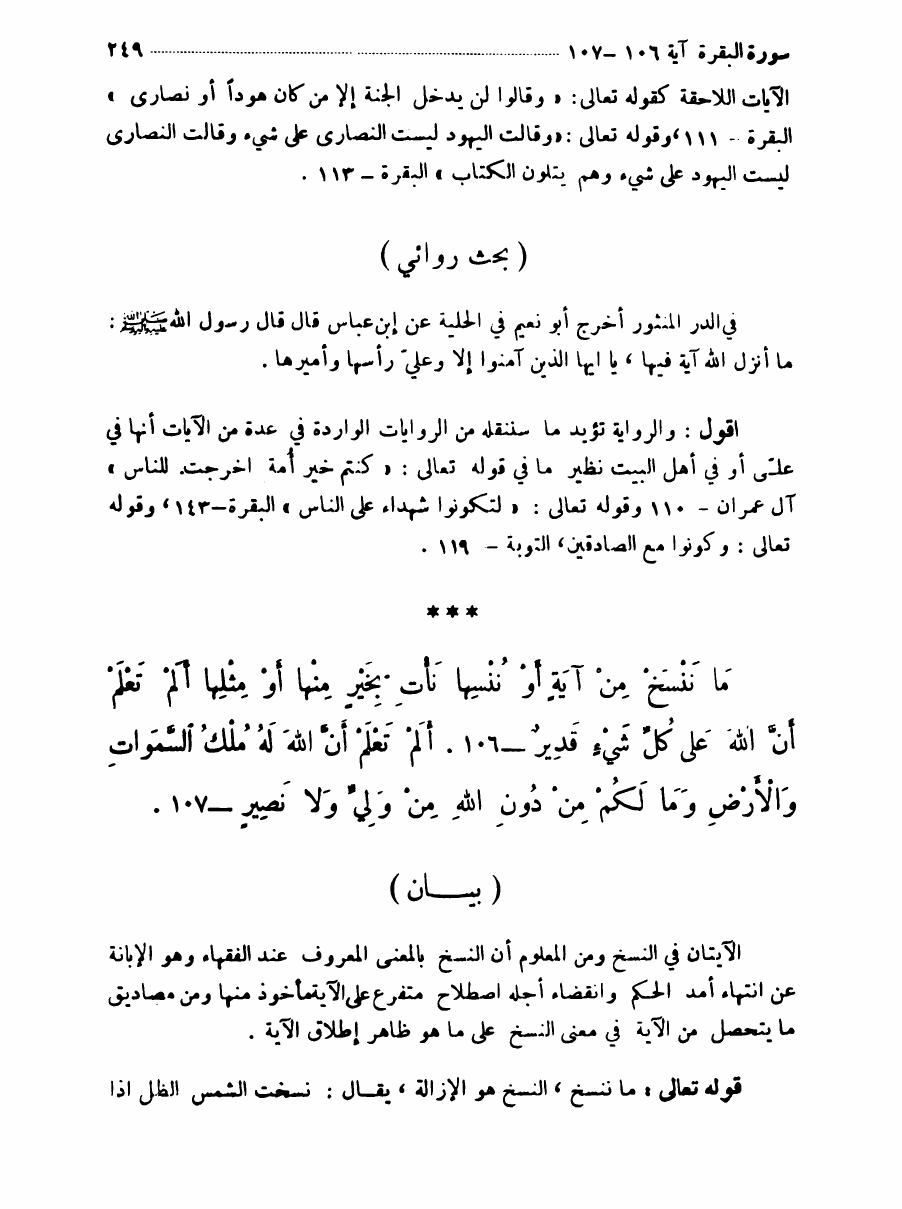 سورة البقرة آية ١٠٦ –١٠٧ ........................ ٢٤٩
الآيات اللاحقة كقوله تعالى: « وقالوا لن يدخل الجنة إلا من كان هوداً أو نصارى »
البقرة - ١١١، وقوله تعالى :«وقالت اليهود ليست النصارى على شيء وقالت النصارى
ليست اليهود على شيء وهم يتلون الكتاب » البقرة – ١١٣ .
( بحث روائي )
في الدر المنثور أخرج أبو نعيم في الحلية عن إبن عباس قال قال رسول الله ﷺ :
ما أنزل الله آية فيها ، يا ايها الذين آمنوا إلا وعليّ رأسها وأميرها .
اقول : والرواية تؤيد ما سننقله من الروايات الواردة في عدة من الآيات أنها في
عليّ أو في أهل البيت نظير ما في قوله تعالى : « كنتم خير أمة اخرجت للناس »
آل عمران - ١١٠ وقوله تعالى : « لتكونوا شهداء على الناس » البقرة–١٤٣، وقوله
تعالى : وكونوا مع الصادقين، التوبة – ١١٩ .
***
مَا نَنْسَخْ مِنْ آيَةٍ أَوْ نُنْسِهَا نَأْتِ بِخَيْرٍ مِنْهَا أَوْ مِثْلِهَا أَلَمْ تَعْلَمْ
أَنَّ اللهَ عَلَى كُلِّ شَيْءٍ قَدِيرٌ –١٠٦ . أَلَمْ تَعْلَمْ أَنَّ اللهَ لَهُ مُلْكُ السَّمَوَاتِ
وَالْأَرْضِ وَمَا لَكُمْ مِنْ دُونِ اللهِ مِنْ وَلِيٍّ وَلَا نَصِيرٍ –١٠٧ .
( بيـــان )
الآيتان في النسخ ومن المعلوم أن النسخ بالمعنى المعروف عند الفقهاء وهو الإبانة
عن انتهاء أمد الحكم وانقضاء أجله اصطلاح متفرع على الآية مأخوذ منها ومن مصاديق
ما يتحصل من الآية في معنى النسخ على ما هو ظاهر إطلاق الآية .
قوله تعالى : ما ننسخ ، النسخ هو الإزالة ، يقـال : نسخت الشمس الظل اذا